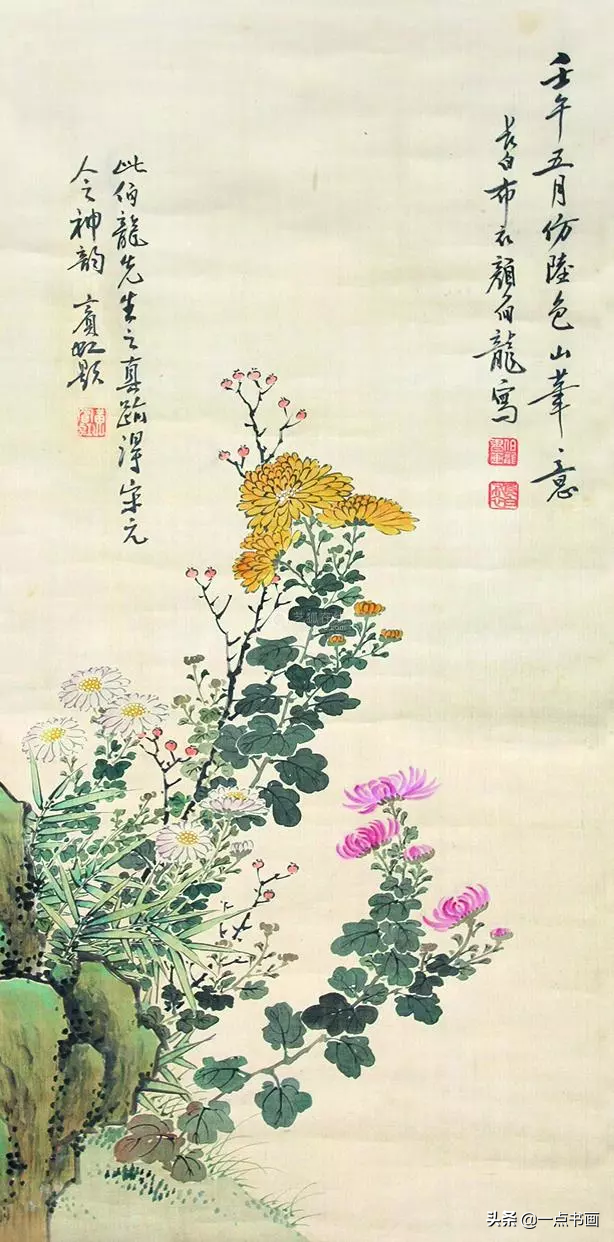 壬午五月仿陸包山筆意
長白布衣顏伯龍寫
此伯龍先生之真跡得宋元
人之神韵 賓虹題
头条 @一点书画